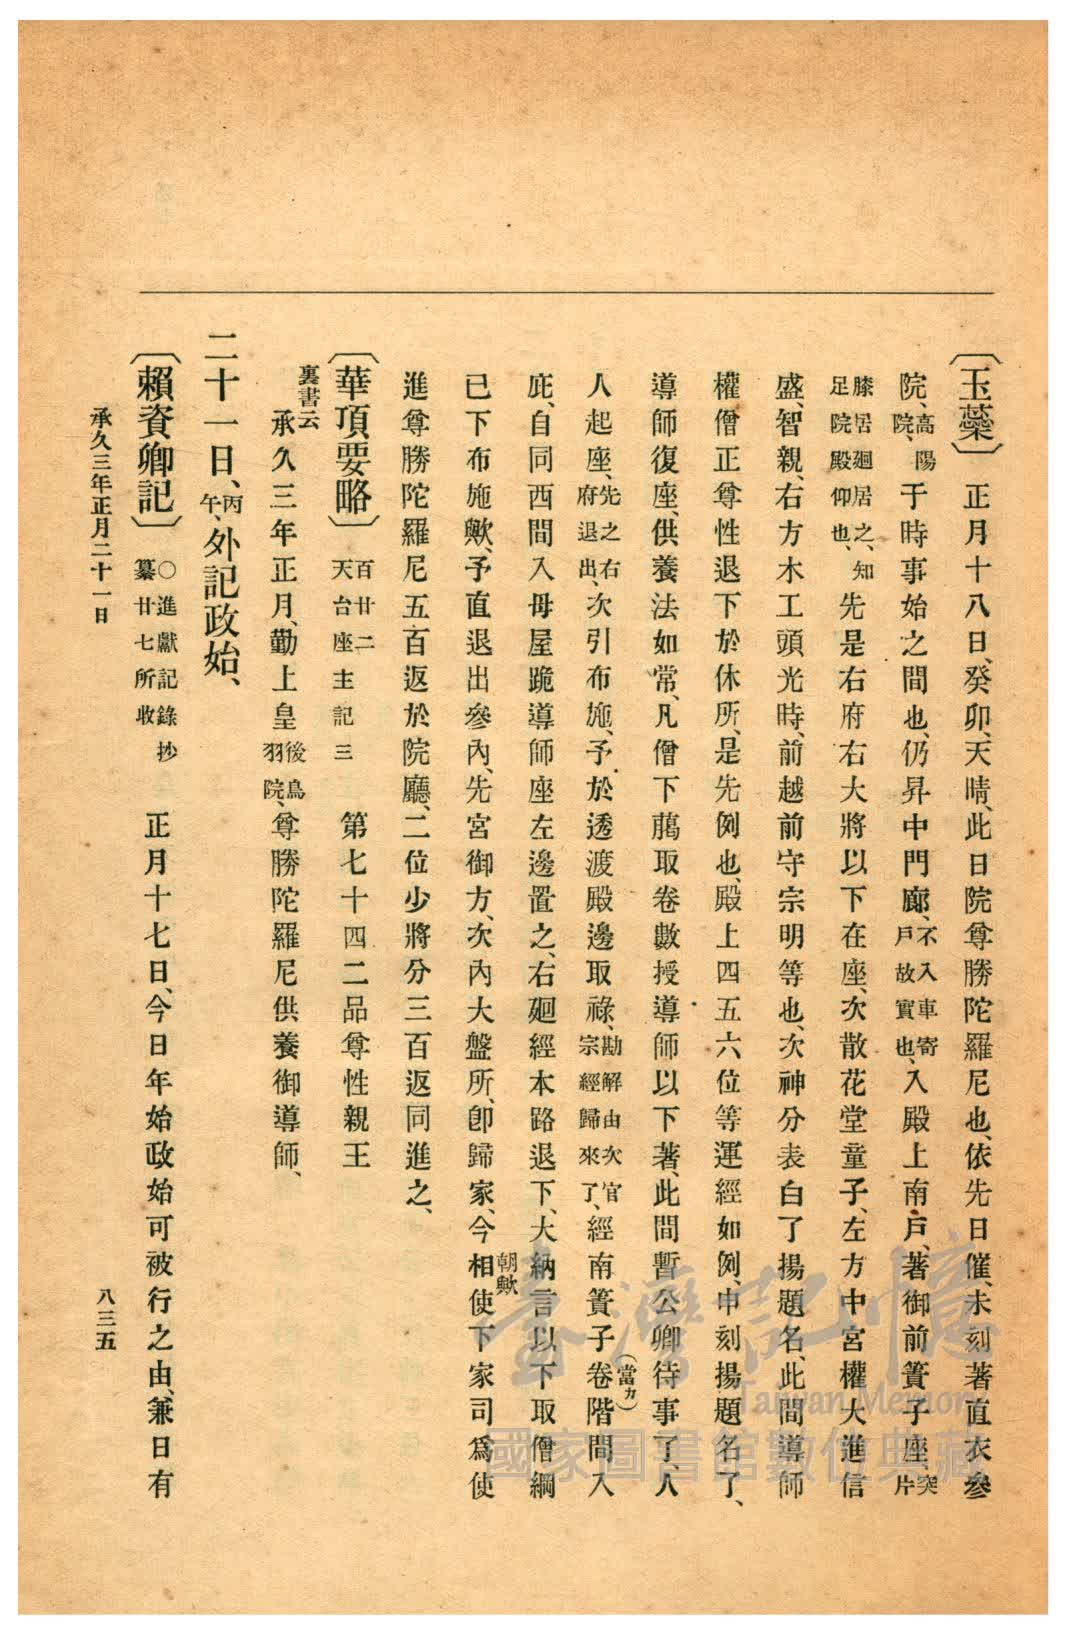 〔玉蘂〕正月十八日、癸卯、天晴、此日院尊勝陀羅尼也、依先日催、未刻著直衣參
院、高陽院、于時事始之間也、仍昇中門廊、不入車寄戶故實也、入殿上南戶、著御前簀子座、突片
膝居廻居之、知足院殿仰也、先是右府右大將以下在座、次散花堂童子、左方中宮權大進信
盛、智親、右方木工頭光時、前越前守宗明等也、次神分表白了揚題名、此間導師
權僧正尊性退下於休所、是先例也、殿上四五六位等運經如例、申刻揚題名了、
導師復座、供養法如常、凡僧下﨟取卷數授導師以下著、此間暫公卿待事了、人
人起座、先之右府退出、次引布施、予於透渡殿邊取祿、勘解由次官宗經歸來了、經南簀子卷(當カ)階間入
庇、自同西間入母屋跪導師座左邊置之、右廻經本路退下、大納言以下取僧綱
已下布施歟、予直退出參內、先宮御方、次內大盤所、卽歸家、今相朝歟使下家司爲使
進尊勝陀羅尼五百返於院廳、二位少將分三百返同進之、
〔華頂要略〕百廿二天台座主記三 第七十四二品尊性親王
裏書云
承久三年正月、勤上皇後鳥羽院、尊勝陀羅尼供養御導師、
二十一日、丙午、外記政始、
〔賴資卿記〕○進獻記錄抄纂廿七所收 正月十七日、今日年始政始可被行之由、兼日有
承久三年正月二十一日
八三五
臺灣記憶
Taiwan Memory
國家圖書館數位典藏